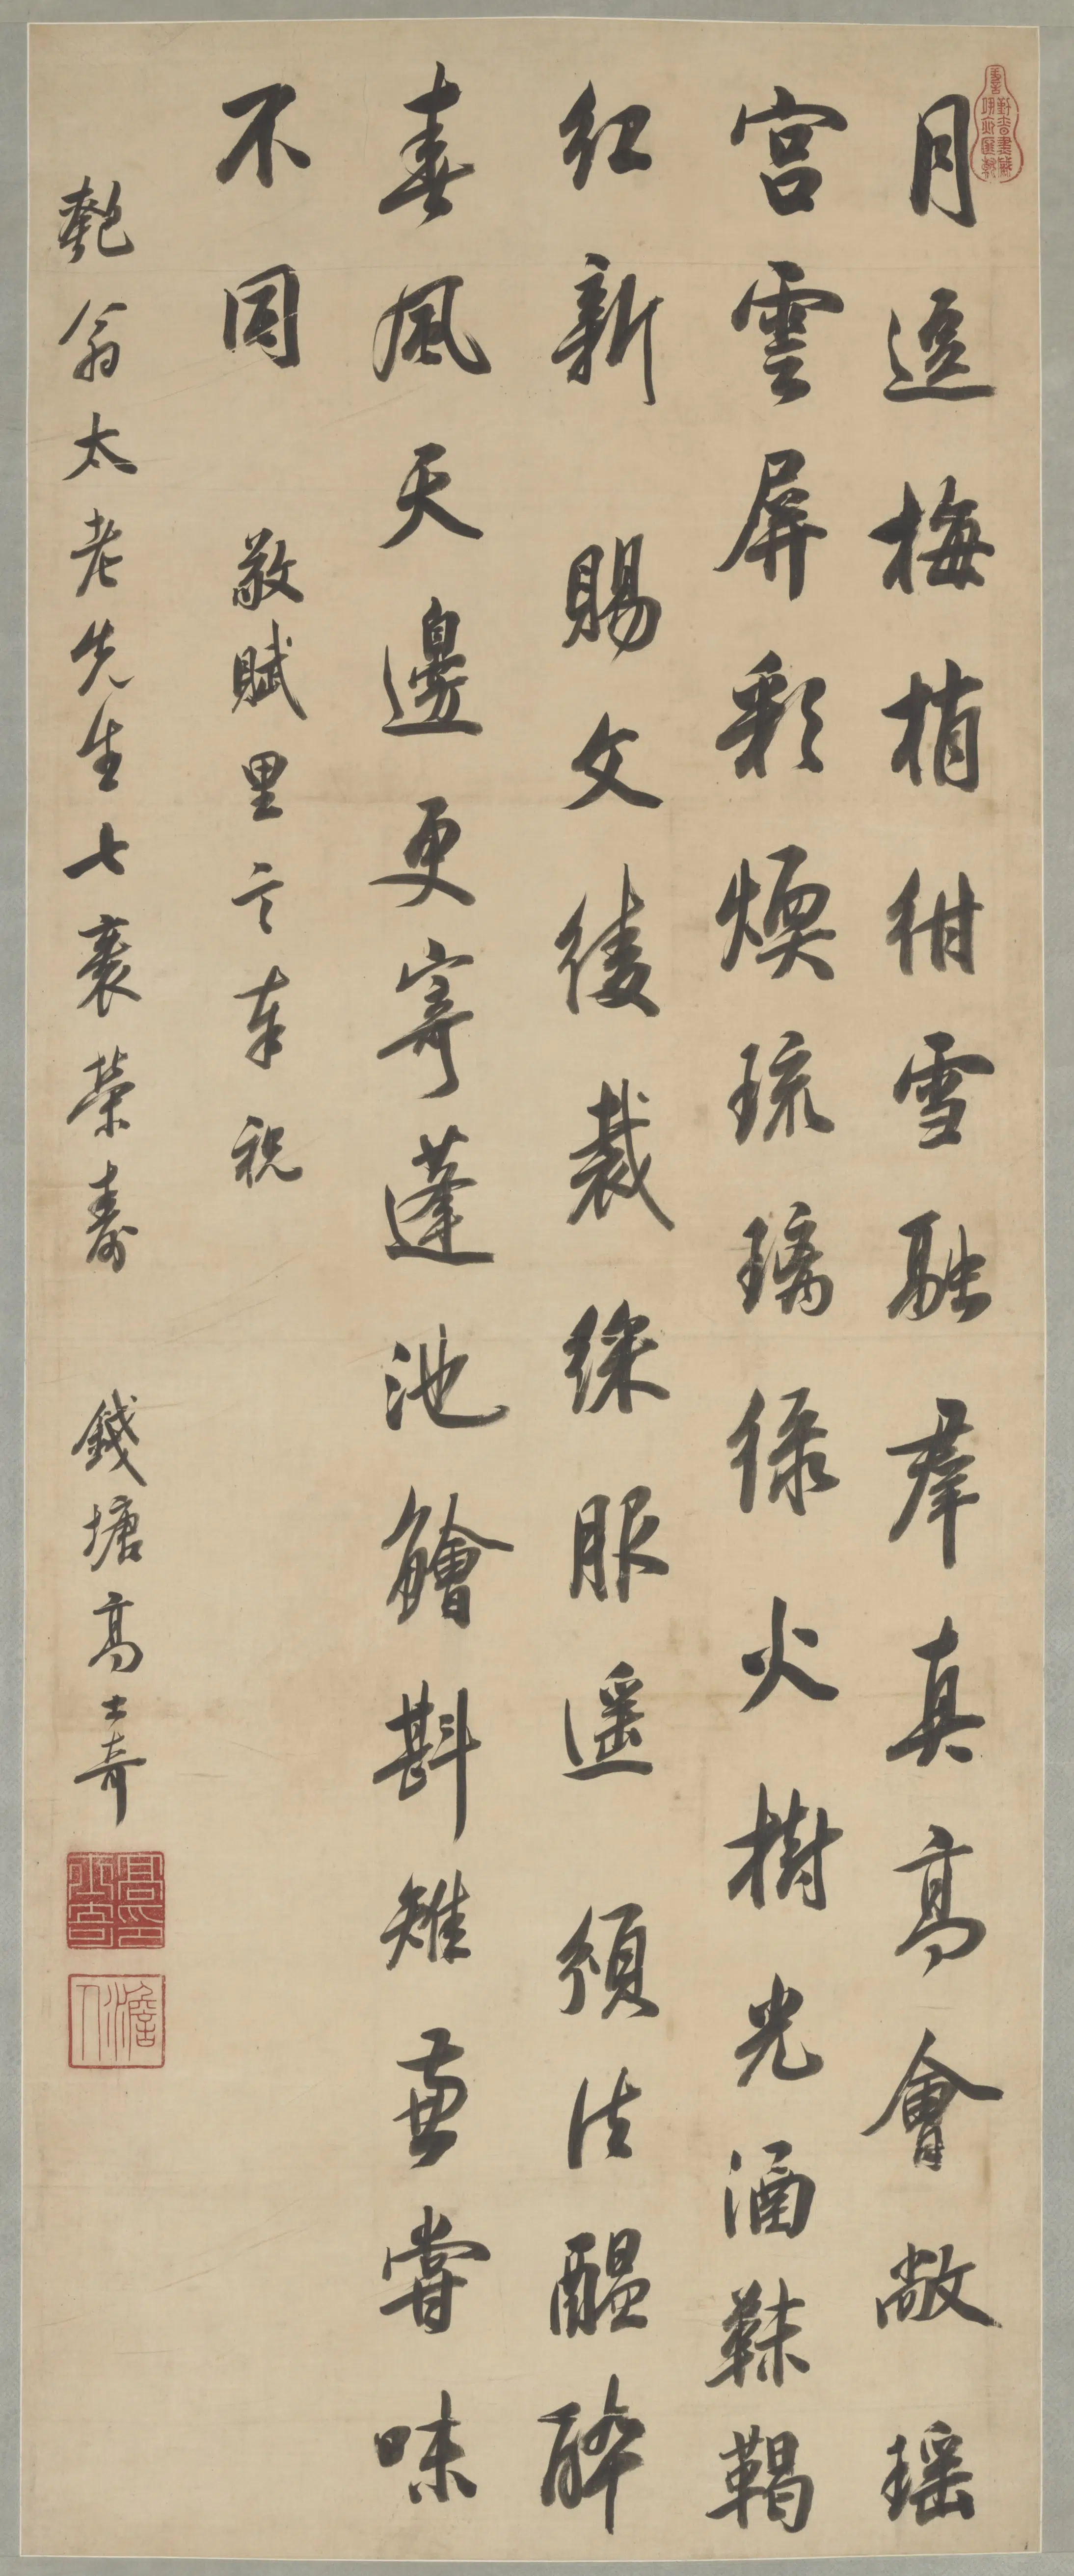 月逗梅梢紺雪融羣真高會敞瑤
宮雲屏彩煥琉璃綠火樹光涵靺鞨
紅新賜文綾裁綵服遙頒法醞醉
春風天邊更寄蓬池鱠斟雉嘗味
不同 敬賦里言奉祝
匏翁太老先生七袠榮壽 錢塘高士奇
高士奇印
澹人